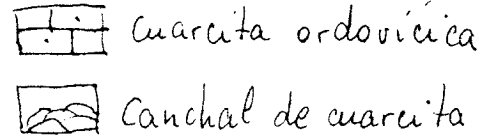 cuarcita ordovícica
Canchal de cuarcita